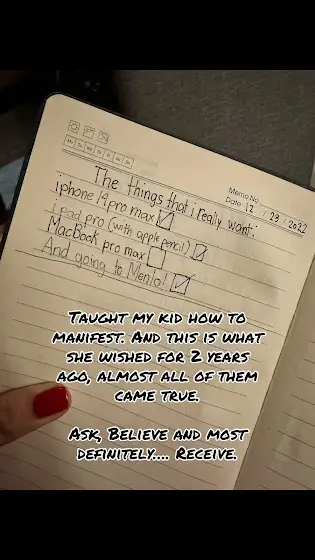 Memo No.
Date 12 / 28 / 2022
Mo Tu We Th Fr Sa Su
The things that i really want:
iphone 14 pro max
ipad pro (with apple pencil)
MacBook pro max
And going to Menlo!
TAUGHT MY KID HOW TO
MANIFEST. AND THIS IS WHAT
SHE WISHED FOR 2 YEARS
AGO, ALMOST ALL OF THEM
CAME TRUE.
ASK, BELIEVE AND MOST
DEFINITELY.... RECEIVE.